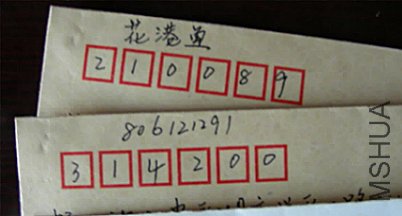 花港通
210089
806121291
314200
MSHUA